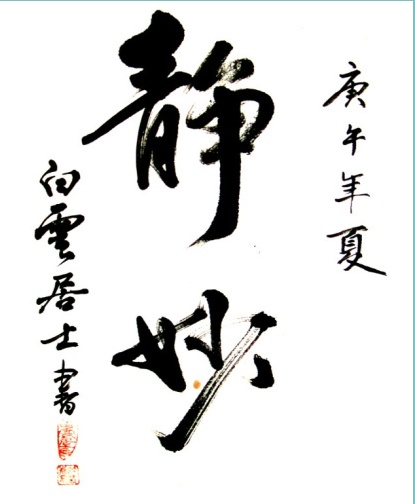 庚午年夏
静妙
白雲居士書